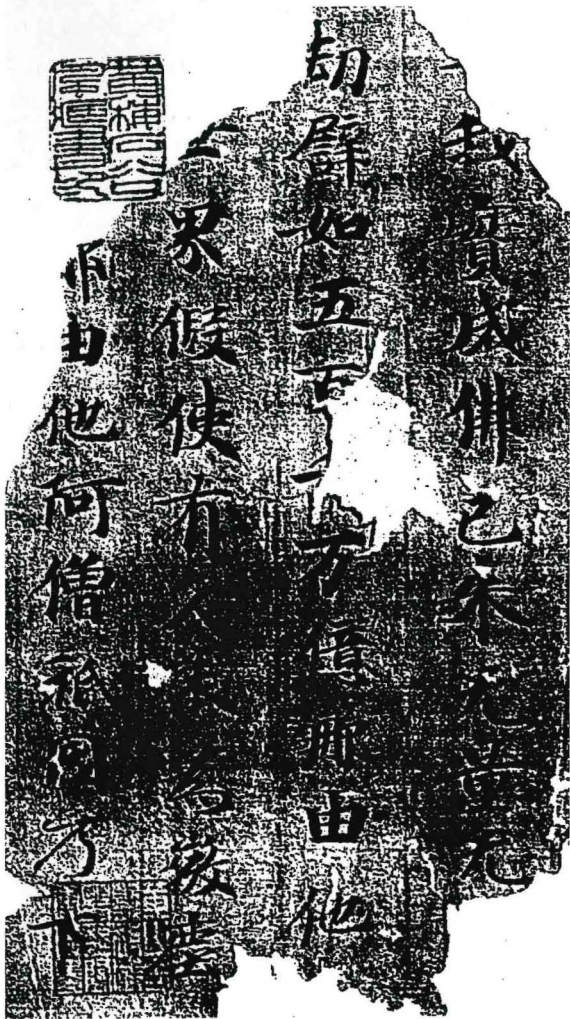 我實成佛已來无量无
劫譬如五百千万億那由他
世界假使有人末為微塵
那由他阿僧祇國乃下